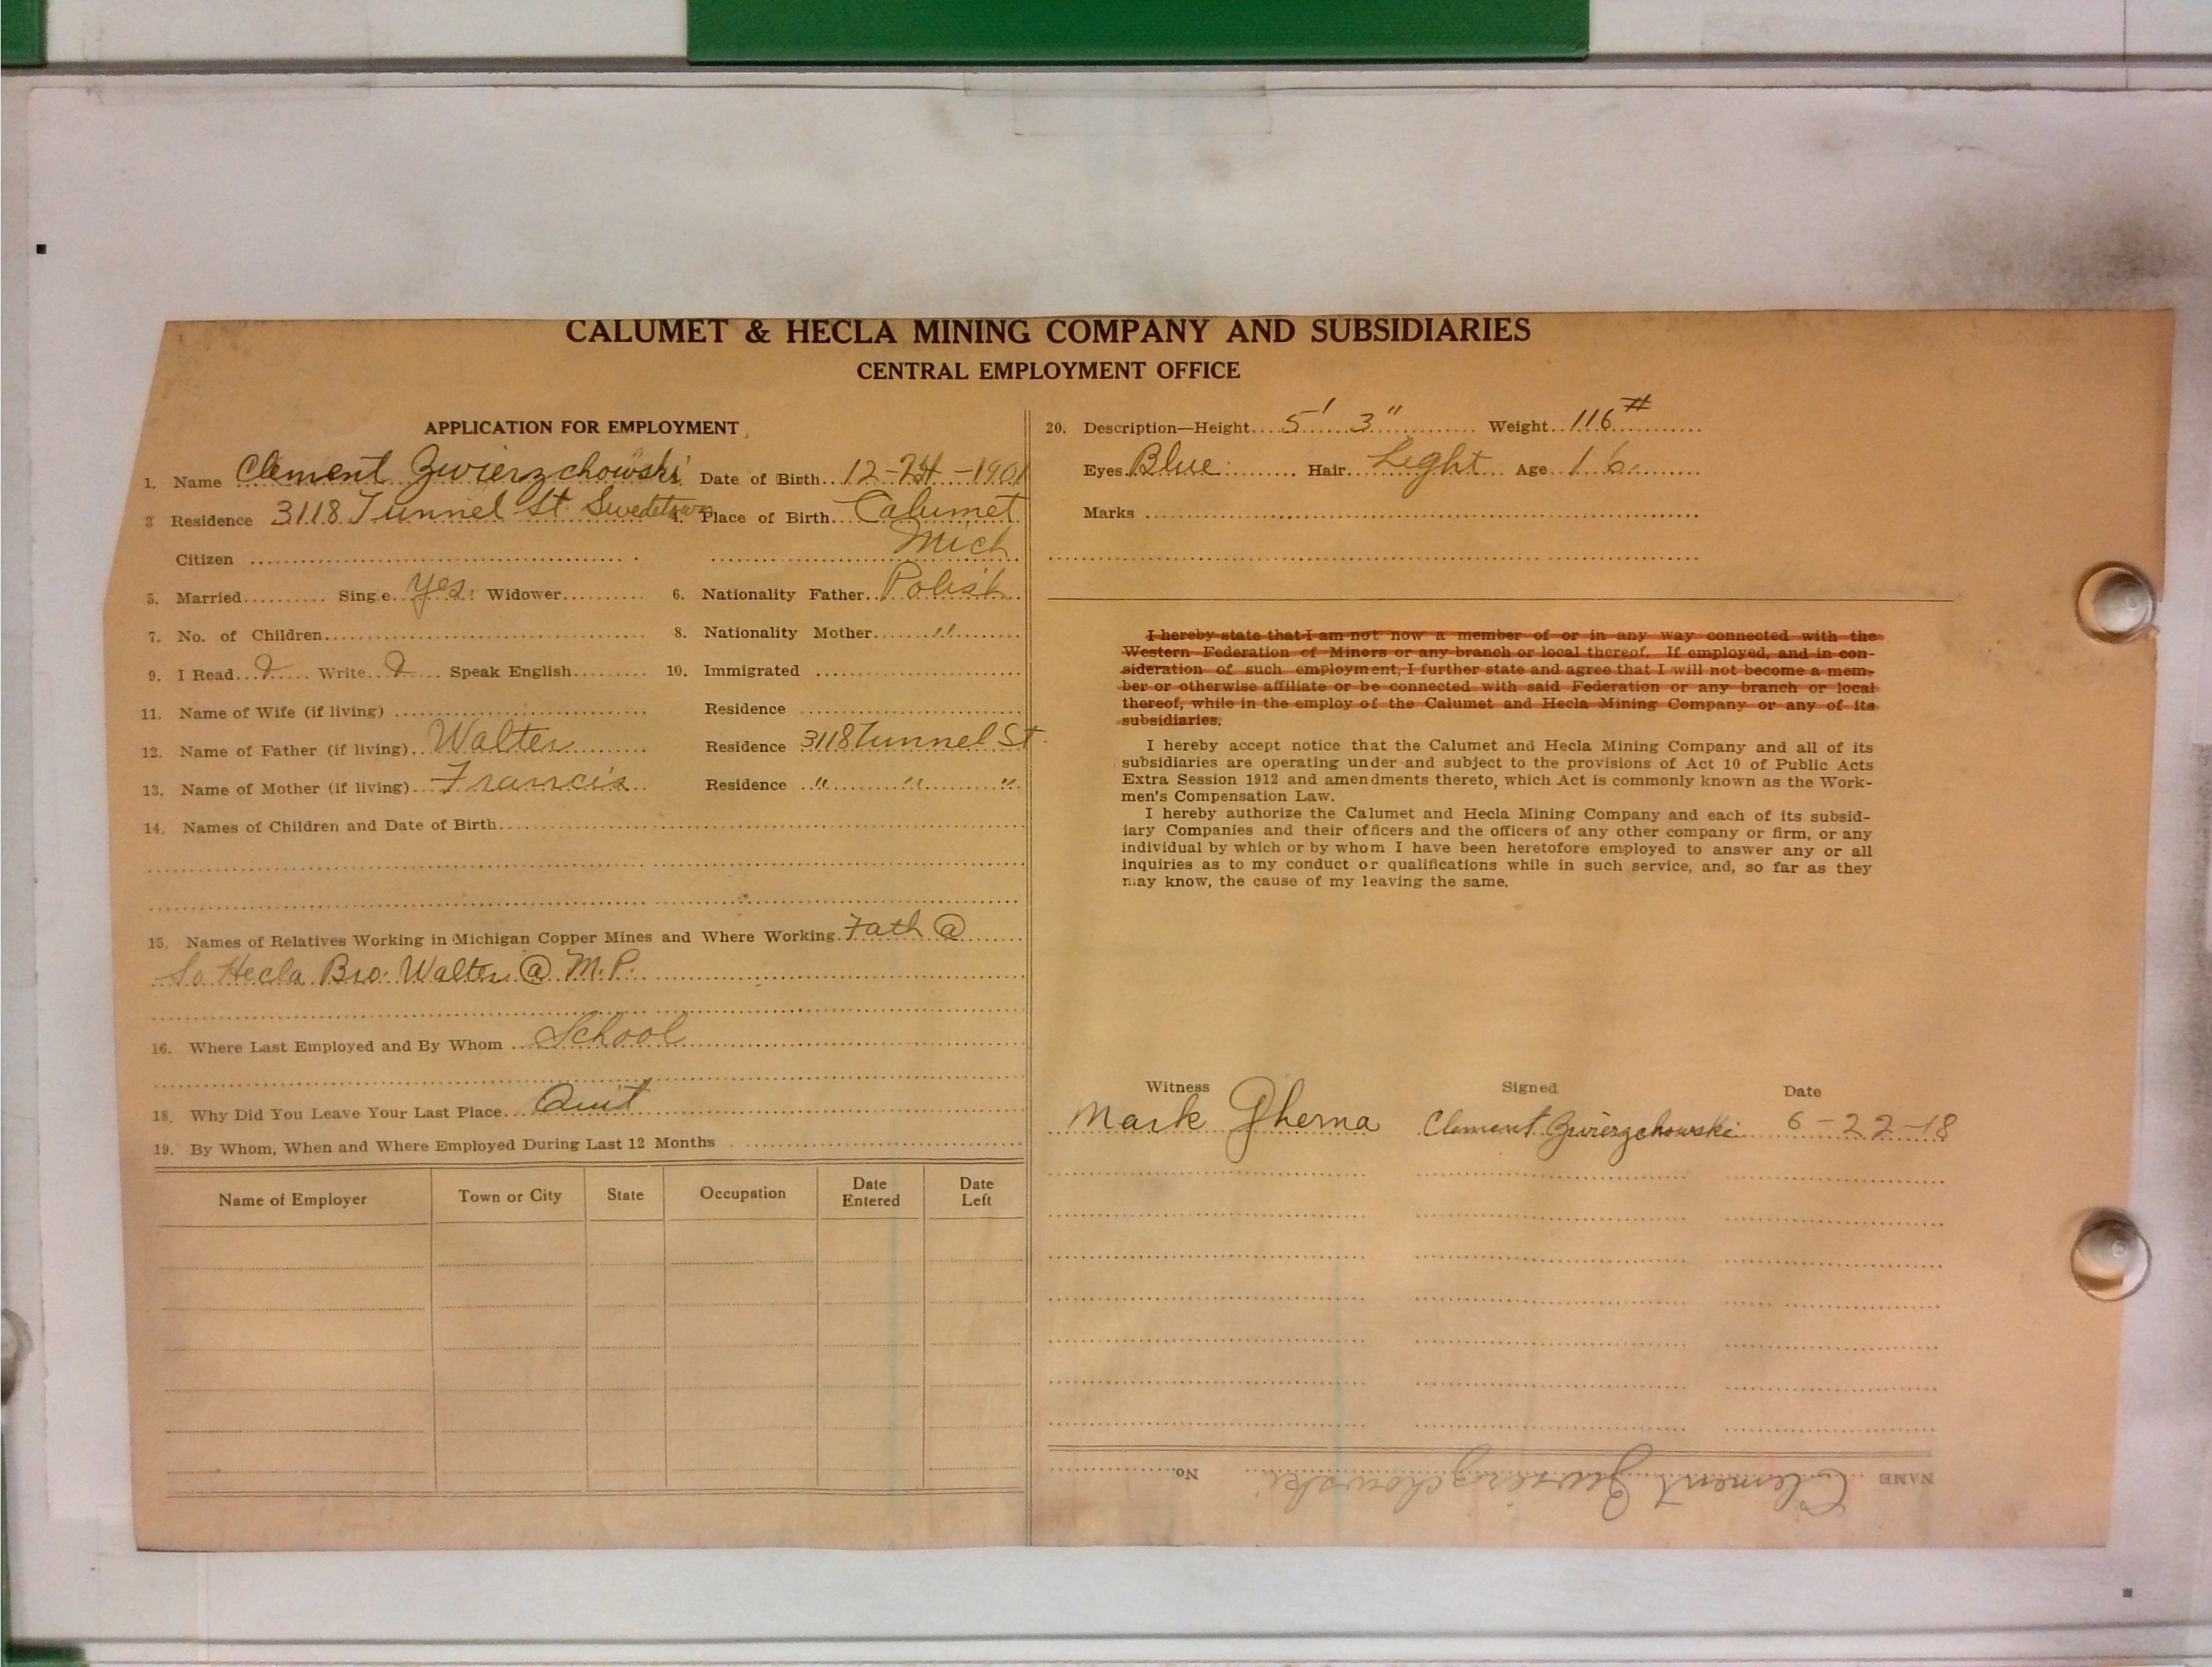 CALUMET & HECLA MINING COMPANY AND SUBSIDIARIES
CENTRAL EMPLOYMENT OFFICE
APPLICATION FOR EMPLOYMENT
1. Name Clement Zwierzchowski Date of Birth 12-24-1901
3 Residence 3118 Tunnel St. Swedetown 4. Place of Birth Calumet
Citizen Mich
5. Married Single Yes. Widower 6. Nationality Father Polish
7. No. of Children 8. Nationality Mother "
9. I Read Write Speak English 10. Immigrated
11. Name of Wife (if living) Residence
12. Name of Father (if living) Walter Residence 3118 Tunnel St.
13. Name of Mother (if living) Francis Residence " " "
14. Names of Children and Date of Birth
15. Names of Relatives Working in Michigan Copper Mines and Where Working. Fath @
So. Hecla. Bro. Walter @ M.P.
16. Where Last Employed and By Whom School
18. Why Did You Leave Your Last Place Quit
19. By Whom, When and Where Employed During Last 12 Months
Name of Employer Town or City State Occupation Date Entered Date Left
20. Description—Height 5' 3" Weight 116#
Eyes Blue Hair Light Age 16
Marks
I hereby state that I am not now a member of or in any way connected with the
Western Federation of Miners or any branch or local thereof. If employed, and in con-
sideration of such employment, I further state and agree that I will not become a mem-
ber or otherwise affiliate or be connected with said Federation or any branch or local
thereof, while in the employ of the Calumet and Hecla Mining Company or any of its
subsidiaries.
I hereby accept notice that the Calumet and Hecla Mining Company and all of its
subsidiaries are operating under and subject to the provisions of Act 10 of Public Acts
Extra Session 1912 and amendments thereto, which Act is commonly known as the Work-
men's Compensation Law.
I hereby authorize the Calumet and Hecla Mining Company and each of its subsid-
iary Companies and their officers and the officers of any other company or firm, or any
individual by which or by whom I have been heretofore employed to answer any or all
inquiries as to my conduct or qualifications while in such service, and, so far as they
may know, the cause of my leaving the same.
Witness Signed Date
Mark Gherna Clement Zwierzchowski 6-22-18
NAME Clement Zwierzchowski No.